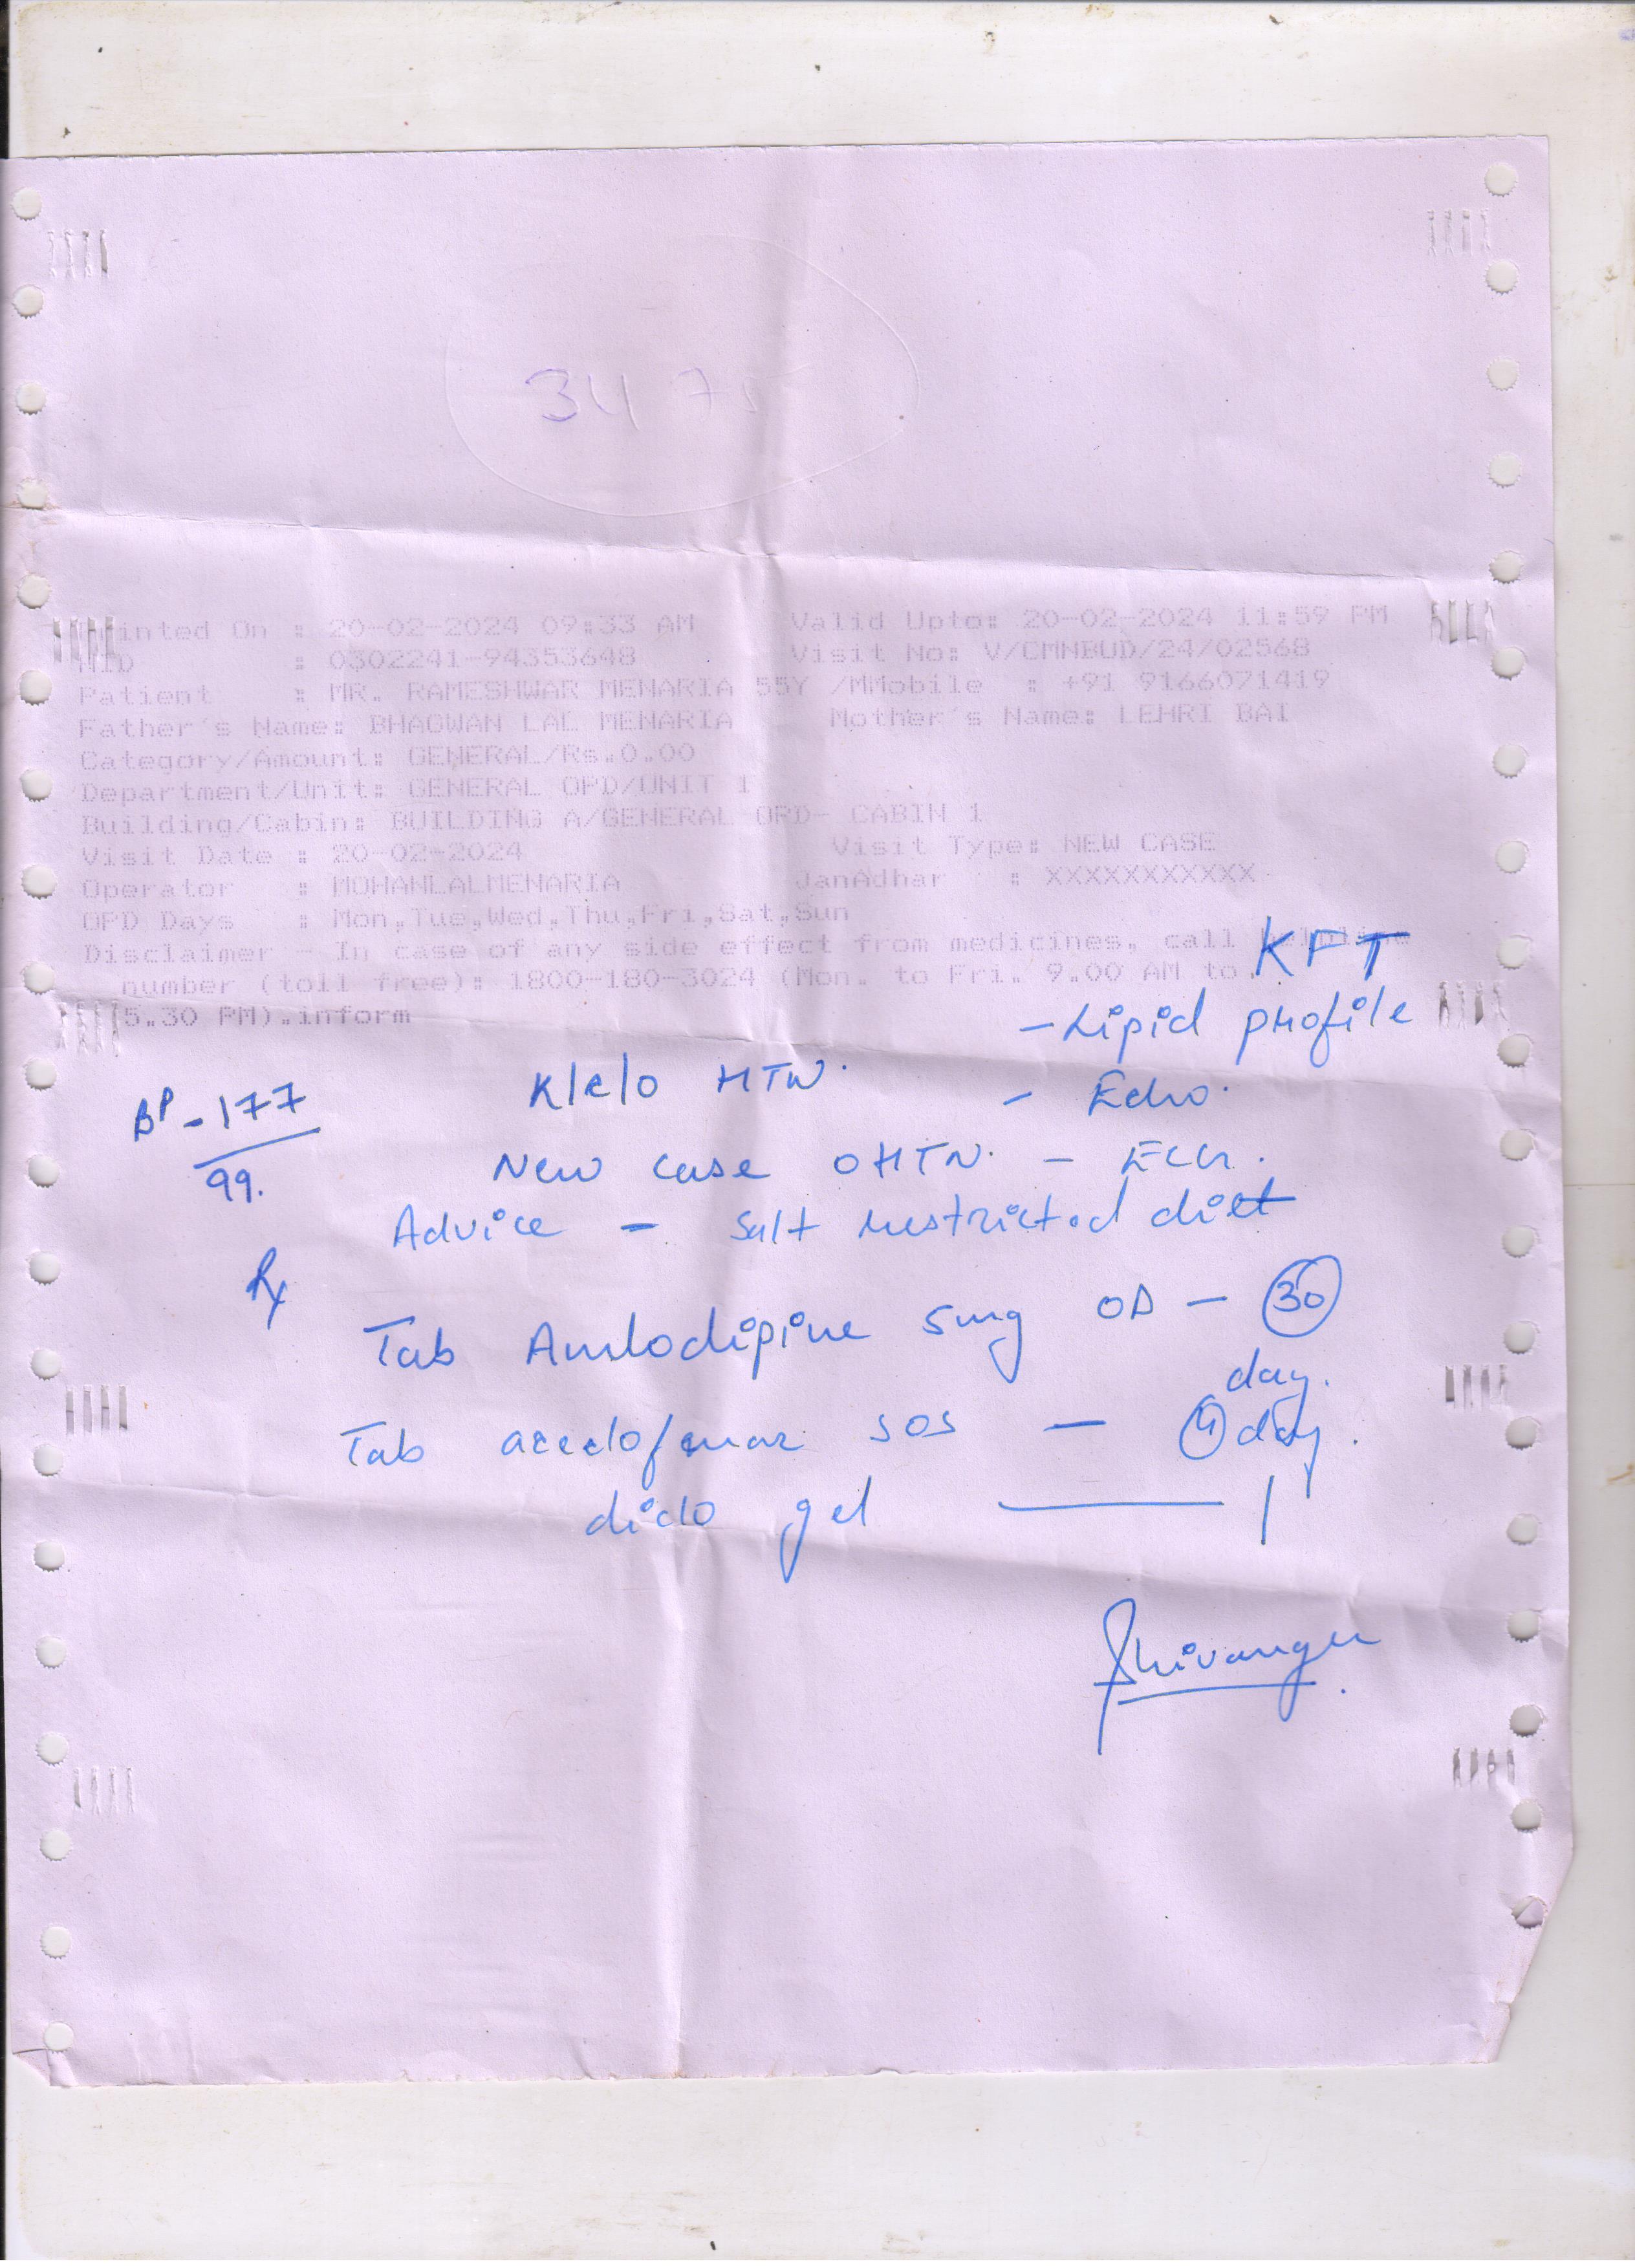 3475
Printed On : 20-02-2024 09:33 AM Valid Upto: 20-02-2024 11:59 PM
HID : 0302241-94353648 Visit No: V/CMNBUD/24/02568
Patient : MR. RAMESHWAR MENARIA 55Y /MMobile : +91 9166071419
Father's Name: BHAGWAN LAL MENARIA Mother's Name: LEHRI BAI
Category/Amount: GENERAL/Rs.0.00
Department/Unit: GENERAL OPD/UNIT 1
Building/Cabin: BUILDING A/GENERAL OPD- CABIN 1
Visit Date : 20-02-2024 Visit Type: NEW CASE
Operator : MOHANLALMENARIA JanAdhar : XXXXXXXXXXX
OPD Days : Mon,Tue,Wed,Thu,Fri,Sat,Sun
Disclaimer - In case of any side effect from medicines, call helpline
number (toll free): 1800-180-3024 (Mon. to Fri. 9.00 AM to
5.30 PM).inform
KFT
- Lipid profile
K/c/o HTN.
- Echo.
BP - 177
99.
New case O HTN. - ECG.
Advice - Salt restricted diet
Rx
Tab Amlodipine 5mg OD - 30
day.
Tab aceclofenac SOS - day.
diclo gel — 1